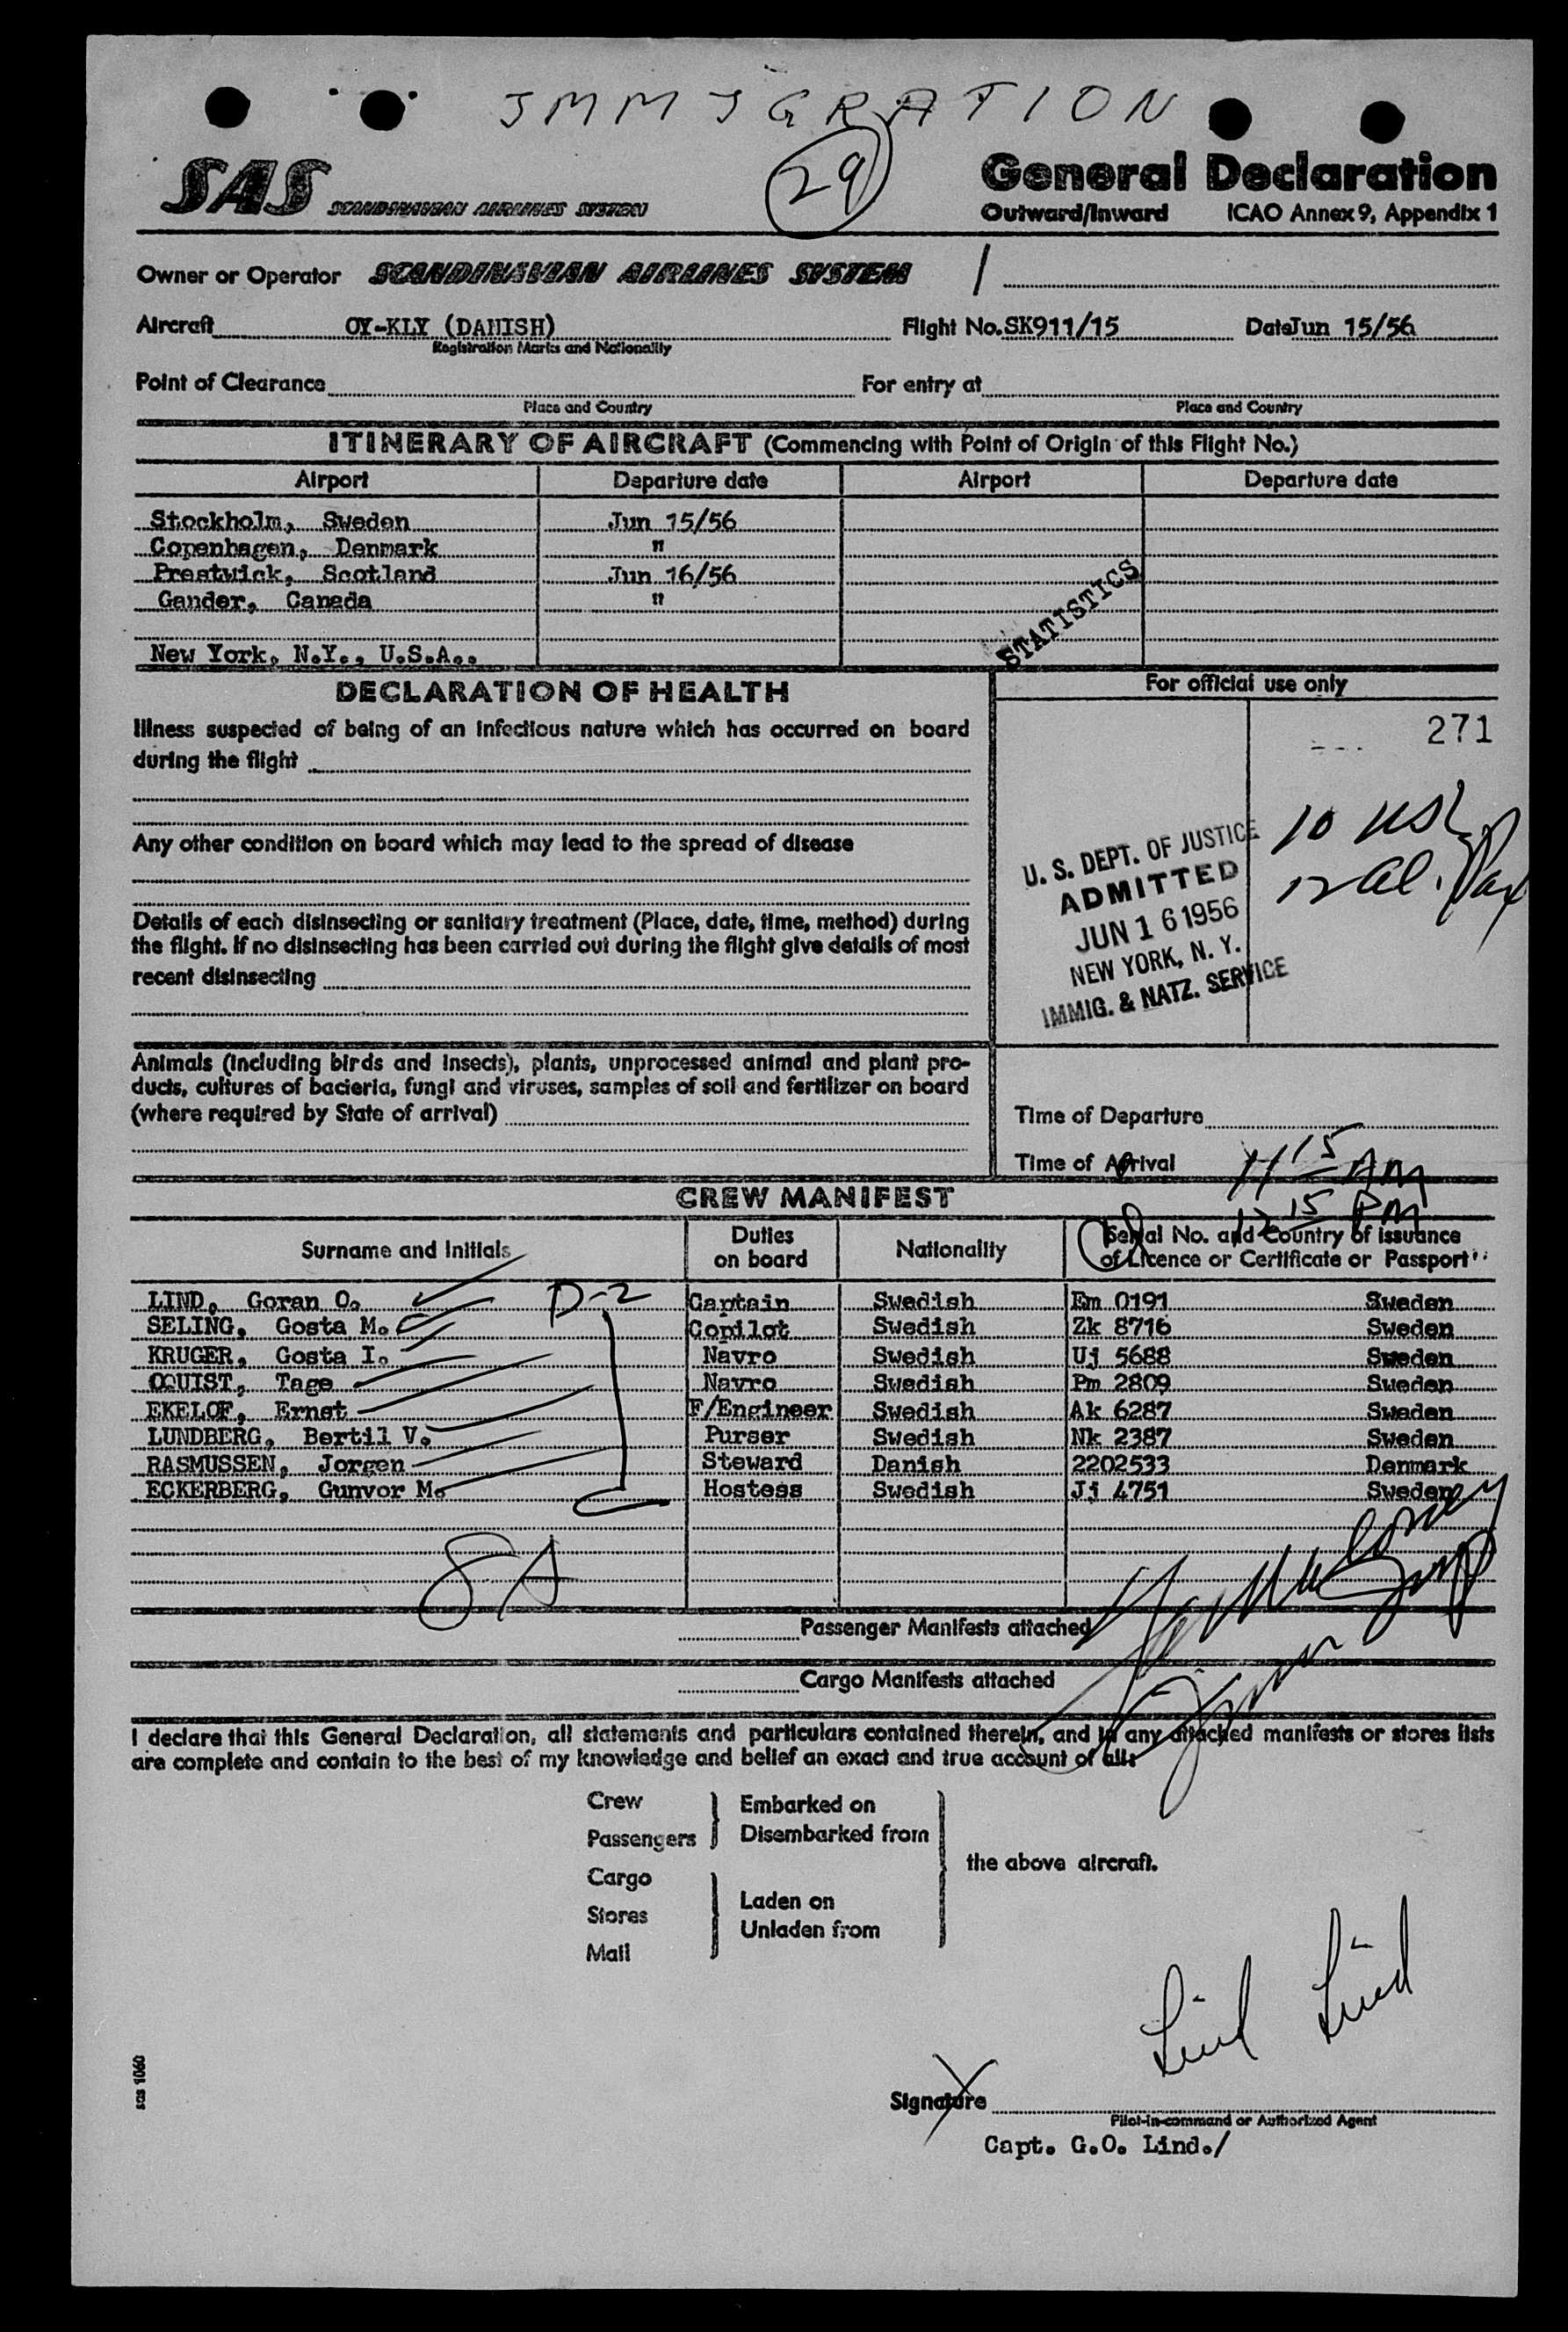 IMMIGRATION
29
SAS SCANDINAVIAN AIRLINES SYSTEM
General Declaration
Outward/Inward ICAO Annex 9, Appendix 1
Owner or Operator SCANDINAVIAN AIRLINES SYSTEM
Aircraft OY-KLY (DANISH) Flight No. SK911/15 Date Jun 15/56
Registration Marks and Nationality
Point of Clearance For entry at
Place and Country Place and Country
ITINERARY OF AIRCRAFT (Commencing with Point of Origin of this Flight No.)
Airport Departure date Airport Departure date
Stockholm, Sweden Jun 15/56
Copenhagen, Denmark "
Prestwick, Scotland Jun 16/56
Gander, Canada "
STATISTICS
New York, N.Y., U.S.A..
DECLARATION OF HEALTH
Illness suspected of being of an infectious nature which has occurred on board
during the flight
Any other condition on board which may lead to the spread of disease
Details of each disinsecting or sanitary treatment (Place, date, time, method) during
the flight. If no disinsecting has been carried out during the flight give details of most
recent disinsecting
Animals (including birds and insects), plants, unprocessed animal and plant pro-
ducts, cultures of bacteria, fungi and viruses, samples of soil and fertilizer on board
(where required by State of arrival)
For official use only
271
U. S. DEPT. OF JUSTICE
ADMITTED
JUN 16 1956
NEW YORK, N. Y.
IMMIG. & NATZ. SERVICE
Time of Departure
Time of Arrival 11 15 AM
12 15 PM
CREW MANIFEST
Surname and Initials Duties on board Nationality Serial No. and Country of issuance of Licence or Certificate or Passport
D-2
LIND, Goran O. Captain Swedish Em 0191 Sweden
SELING, Gosta M. Copilot Swedish Zk 8716 Sweden
KRUGER, Gosta I. Navro Swedish Uj 5688 Sweden
OQUIST, Tage Navro Swedish Pm 2809 Sweden
EKELOF, Ernst F/Engineer Swedish Ak 6287 Sweden
LUNDBERG, Bertil V. Purser Swedish Nk 2387 Sweden
RASMUSSEN, Jorgen Steward Danish 2202533 Denmark
ECKERBERG, Gunvor M. Hostess Swedish Jj 4751 Sweden
8A
Passenger Manifests attached
Cargo Manifests attached
I declare that this General Declaration, all statements and particulars contained therein, and in any attached manifests or stores lists
are complete and contain to the best of my knowledge and belief an exact and true account of all:
Crew
Passengers
Embarked on
Disembarked from
Cargo
Stores
Mail
Laden on
Unladen from
the above aircraft.
Lind Lind
Signature
Pilot-in-command or Authorized Agent
Capt. G.O. Lind./
sas 1060